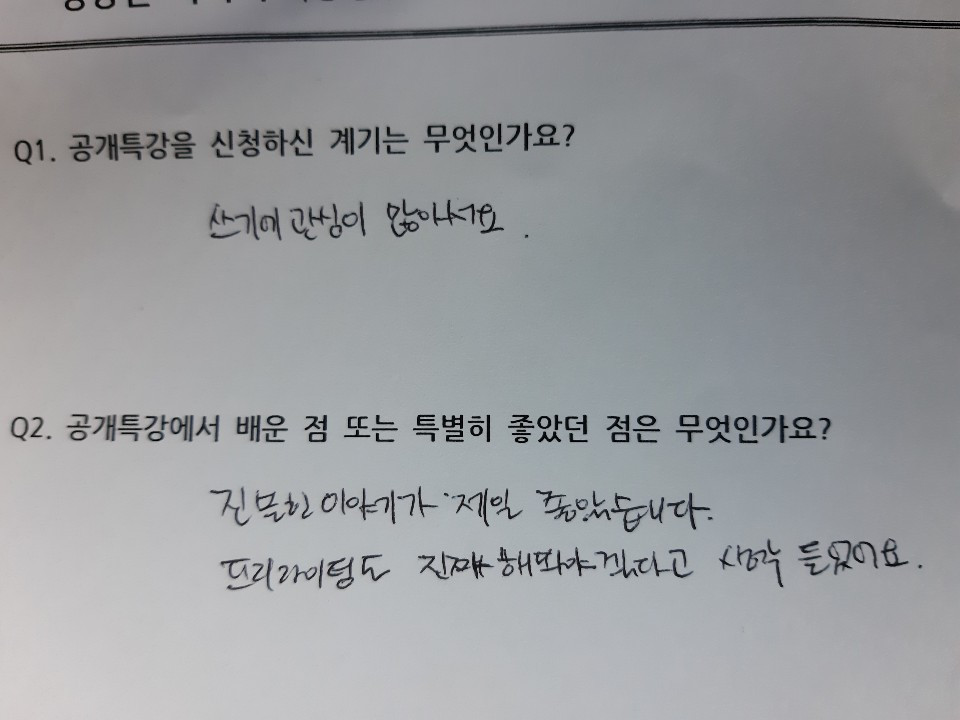 Q1. 공개특강을 신청하신 계기는 무엇인가요?
쓰기에 관심이 많아서요.
Q2. 공개특강에서 배운 점 또는 특별히 좋았던 점은 무엇인가요?
진솔한 이야기가 제일 좋았습니다.
프리라이팅도 진짜 해봐야겠다고 생각 들었어요.